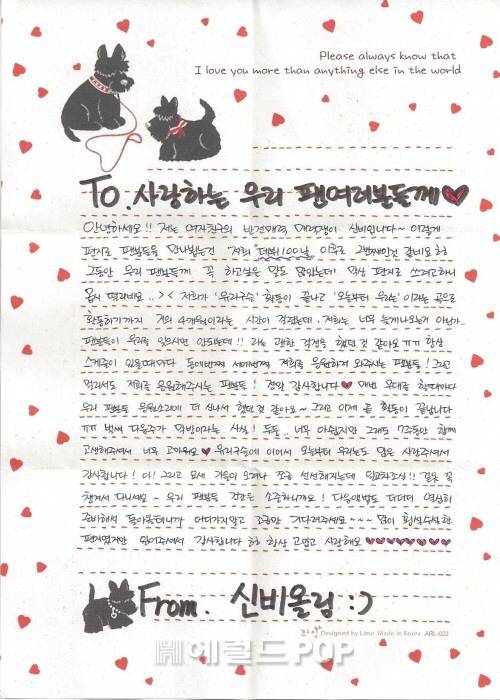 Please always know that
I love you more than anything else in the world
To. 사랑하는 우리 팬여러분들께♥
안녕하세요!! 저는 여자친구의 반전매력 매력쟁이 신비입니다~ 이렇게
편지로 팬분들을 만나뵙는건 저희 "데뷔100일" 이후로 그번째인것 같네요 히
그동안 우리 팬분들께 꼭 하고싶은 말도 많았는데 막상 편지로 쓰려고하니
몹시 떨리네요..>< 저희가 '유리구슬' 활동이 끝나고 '오늘부터 우리는'이라는 곡으로
활동하기까지 거의 4개월이라는 시간이 걸렸는데, 저희는 너무 늦게나오는게 아닌가..
팬분들이 우리를 잊으시면 안되는데!! 라는 괜한 걱정을 했던것 같아요ㅠㅠ 항상
스케줄이 있을때마다 두번째번 세번째번 저희를 응원하러 와주시는 팬분들! 그리고
멀리서도 저희를 응원해주시는 팬분들! 정말 감사합니다♥ 매번 무대를 할때마다
우리 팬분들 응원소리에 더 신나서 했던것 같아요~ 그리고 이제 곧 활동이 끝납니다
ㅠㅠ 벌써 다음주가 막방이라는 사실! 두둥.. 너무 아쉽지만 그래도 7주동안 함께
고생해주셔서 너무 고마워요♥ 유리구슬에 이어서 오늘부터 우리는도 많은 사랑주셔서
감사합니다! 아! 그리고 요새 가을이 오려나 조금 선선해지는데 일교차조심!! 겉옷 꼭
챙겨서 다니세요~ 우리 팬분들 건강은 소중하니까요! 다음앨범도 더더더 열심히
준비해서 돌아올테니까 어디가지말고 조금만 기다려주세요~~~ 많이 횡설수설한
편지였지만 읽어주셔서 감사합니다 히 항상 고맙고 사랑해요♥♥♥♥♥♥♥♥
From. 신비올림 :)
Designed by Lime Made in Korea ARL-022
헤럴드POP